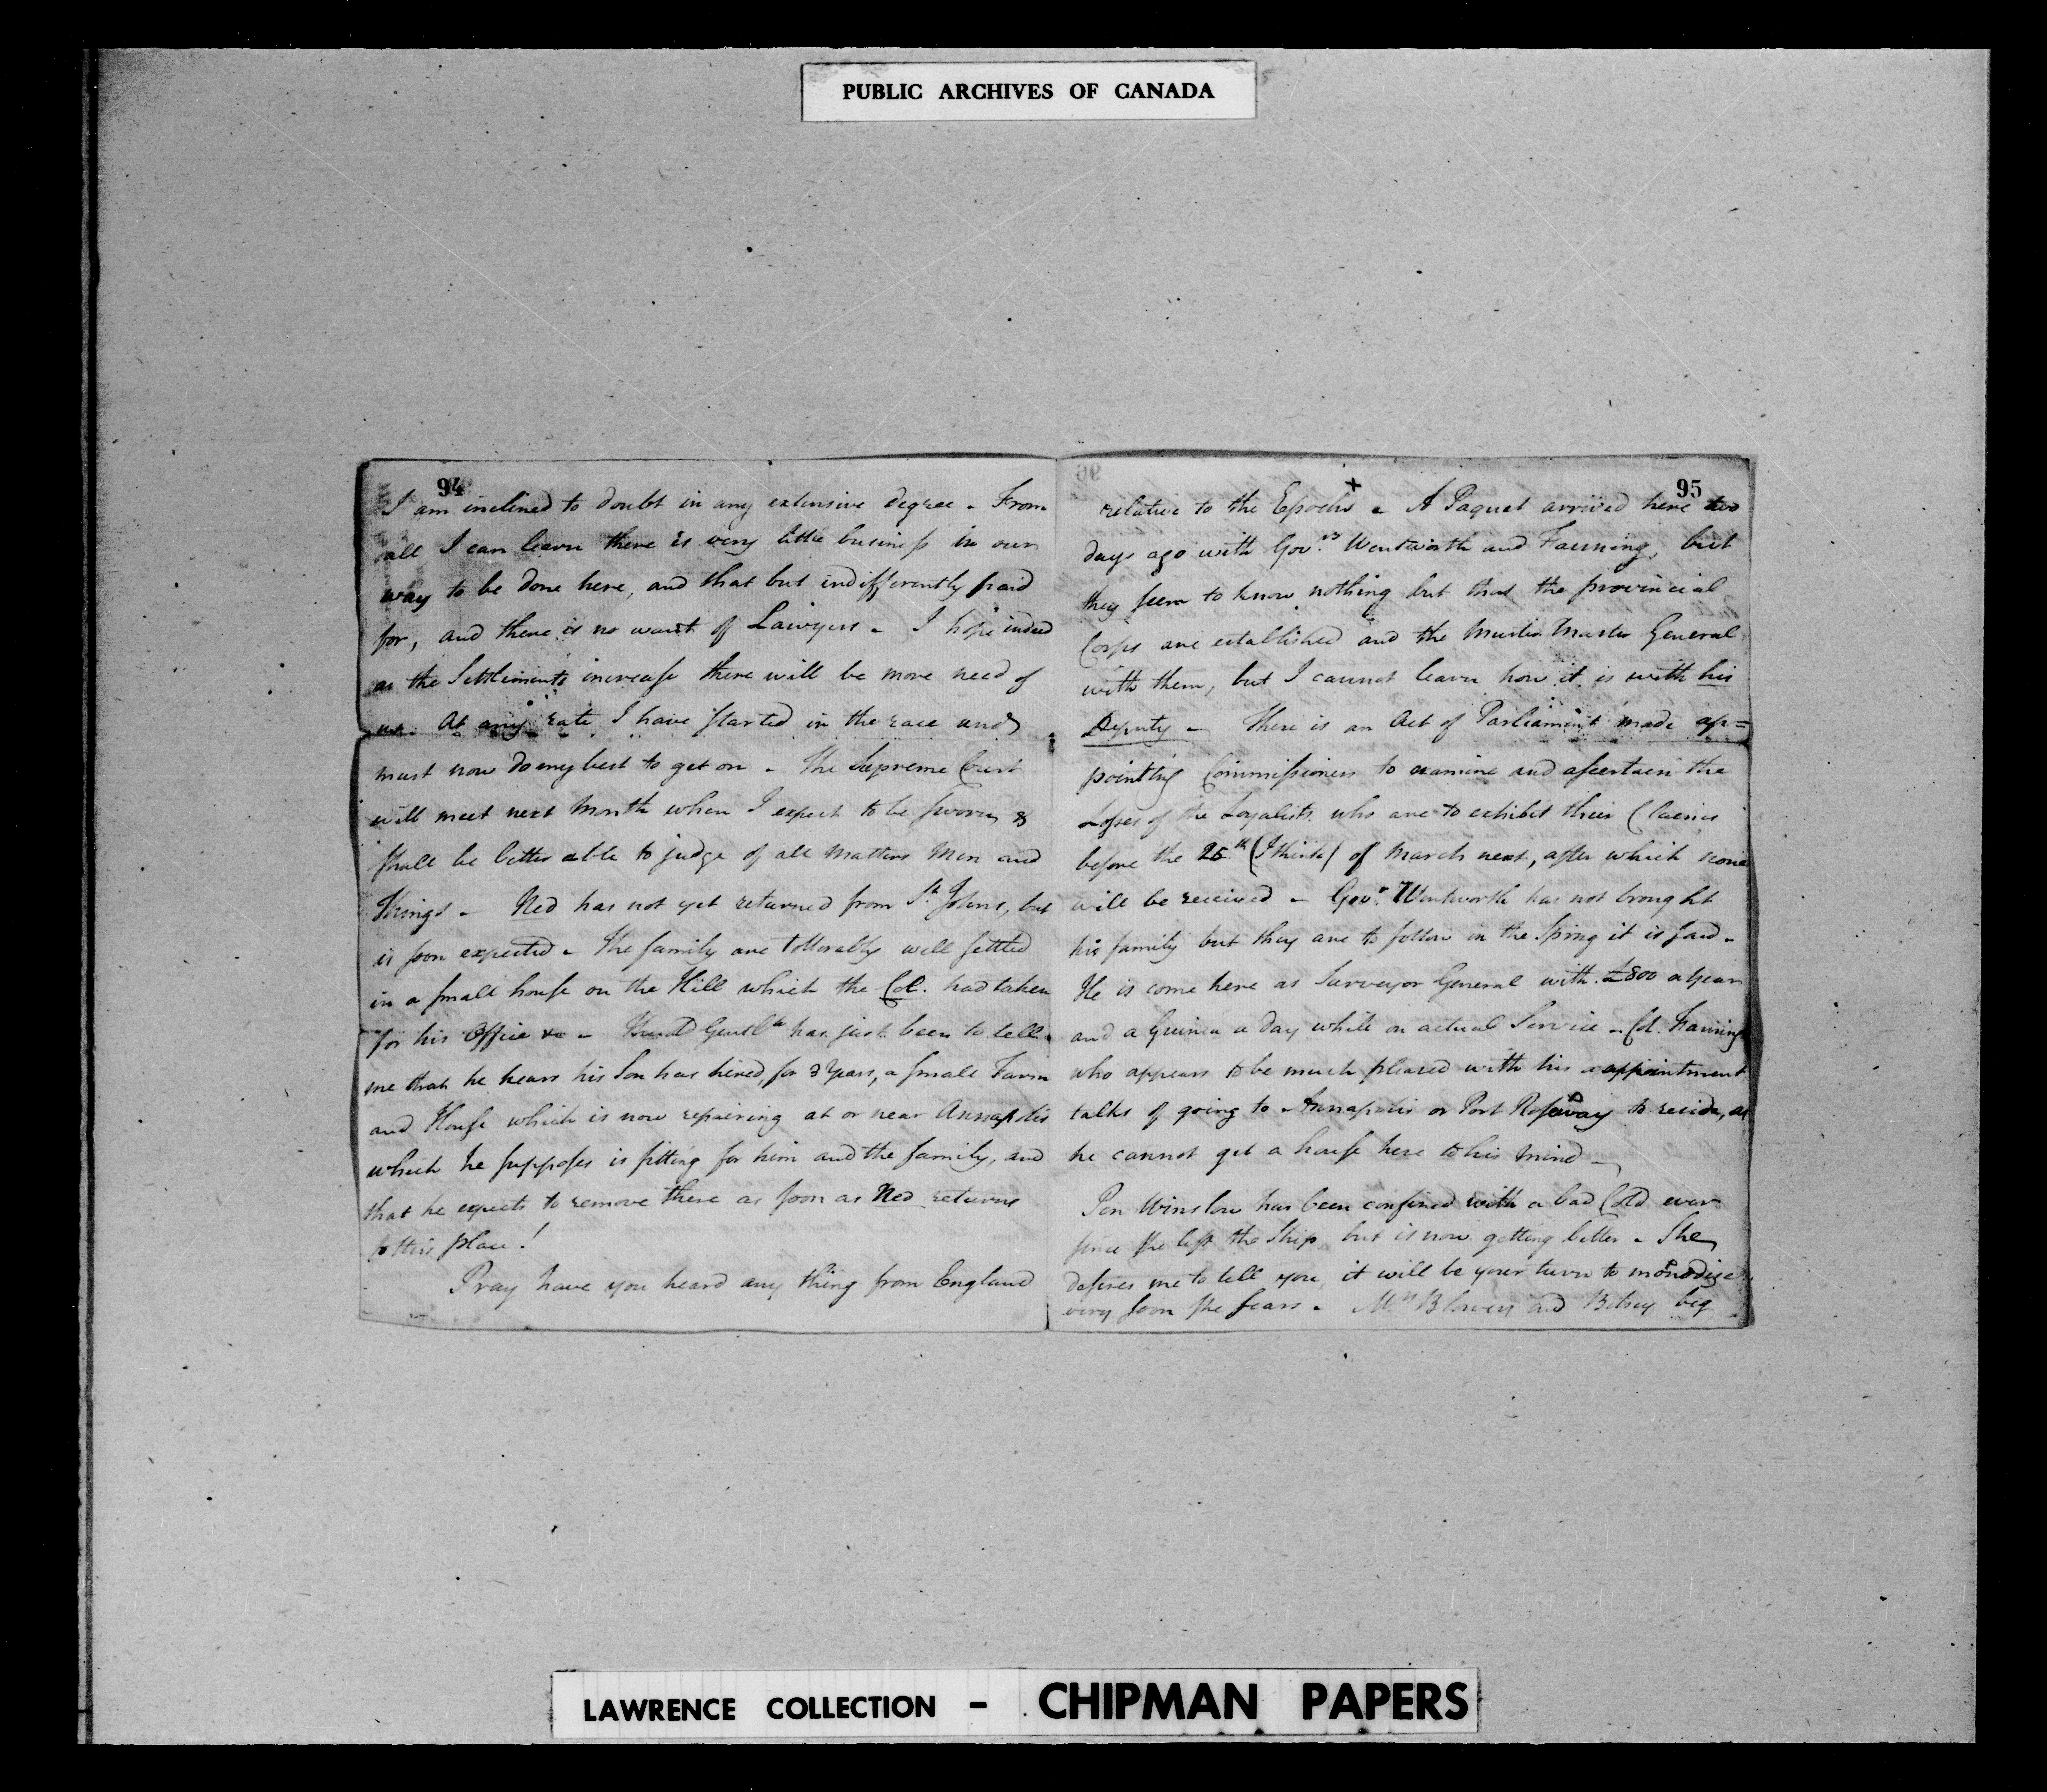 PUBLIC ARCHIVES OF CANADA
94
I am inclined to doubt in any extensive degree - From
all I can learn there is very little business in our
way to be done here, and that but indifferently paid
for, and there is no want of Lawyers - I hope indeed
as the Settlements increase there will be more need of
us. At any rate I have started in the race and
must now do my best to get on - The Supreme Court
will meet next Month when I expect to be sworn &
shall be better able to judge of all matters Men and
things - Ned has not yet returned from St. Johns, but
is soon expected - The family are tollerably well settled
in a small house on the Hill which the Col. had taken
for his Office &c - Gentln has just been to tell
me that he hears his Son has hired, for 3 Years, a small Farm
and House which is now repairing at or near Annapolis
which he supposes is fitting for him and the family, and
that he expects to remove there as soon as Ned returns
to this place!
Pray have you heard any thing from England
95
relative to the Epochs x - A Paquet arrived here two
days ago with Govrs Wentworth and Fanning, but
they seem to know nothing but that the provincial
Corps are established and the Muster Master General
with them, but I cannot learn how it is with his
Deputy - There is an Act of Parliament made ap=
pointing Commissioners to examine and ascertain the
Losses of the Loyalists who are to exhibit their Claims
before the 25th (I think) of March next, after which none
will be received - Govr. Wentworth has not brought
his family but they are to follow in the Spring it is said -
He is come here as Surveyor General with £800 a Year
and a Guinea a day while on actual Service - Col. Fanning
who appears to be much pleased with his appointment
talks of going to Annapolis or Port Roseway to reside, as
he cannot get a house here to his mind -
Pen Winslow has been confined with a bad Cold ever
since she left the Ship, but is now getting better - She
desires me to tell you, it will be your turn to monodize
very soon she fears - Mrs Blowers and Betsey beg
LAWRENCE COLLECTION - CHIPMAN PAPERS